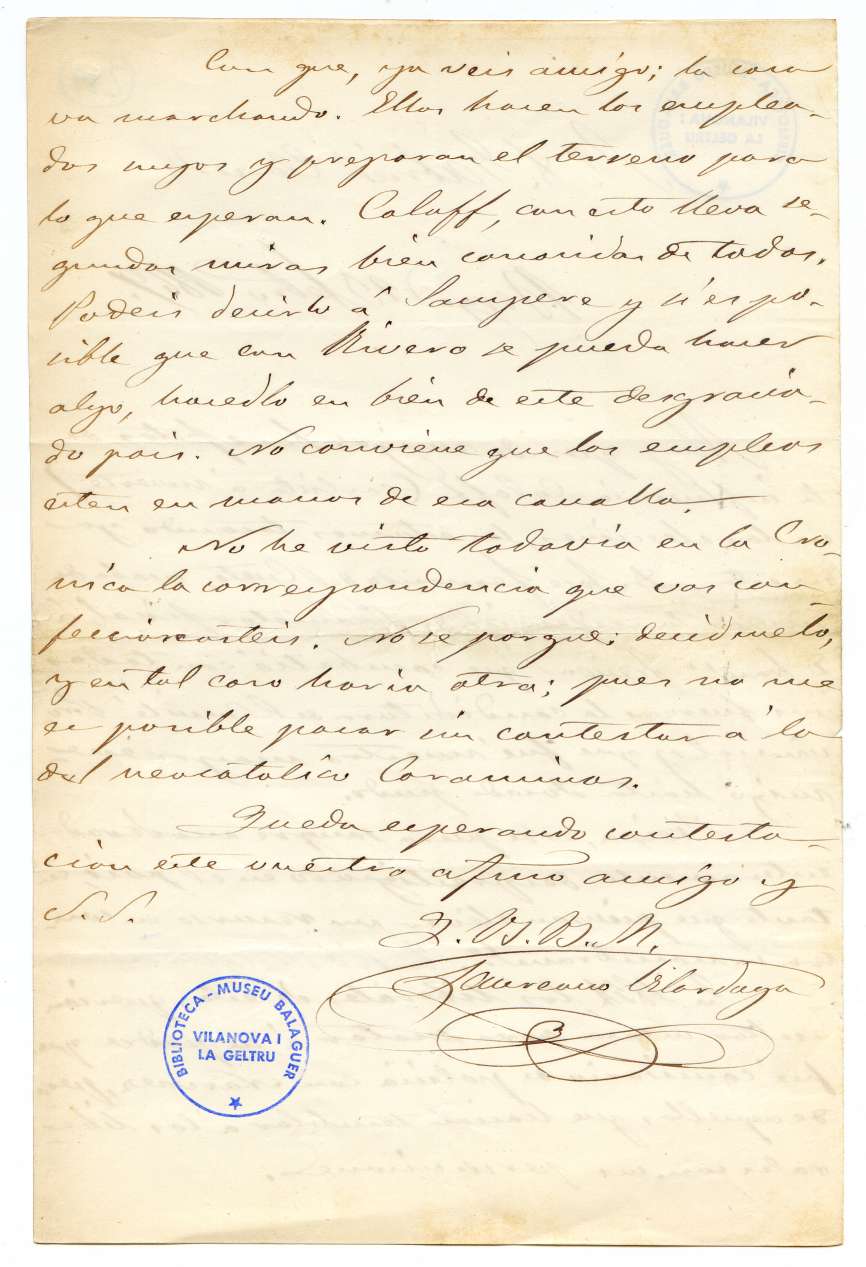 Con que, ya veis amigo; la cosa
va marchando. Ellos hacen los emplea-
dos suyos y preparan el terreno para
lo que esperan. Caluff, con esto lleva se-
gundas miras bien conocidas de todos.
Podeis decirlo á Sampere y si es po-
sible que con Rivero se pueda hacer
algo, hacedlo en bien de este desgracia-
do pais. No conviene que los empleos
esten en manos de esa canalla.
No he visto todavia en la Cro-
nica la correspondencia que vos con-
feccionasteis. No se porque; decidmelo,
y en tal caso haria otra; pues no me
es posible pasar sin contestar á la
del neocatolico Coraminas.
Queda esperando contesta-
cion este vuestro afmo amigo y
S. S.
Q. B. B. M.
Laureano Vilardaga
BIBLIOTECA - MUSEU BALAGUER
VILANOVA I
LA GELTRU